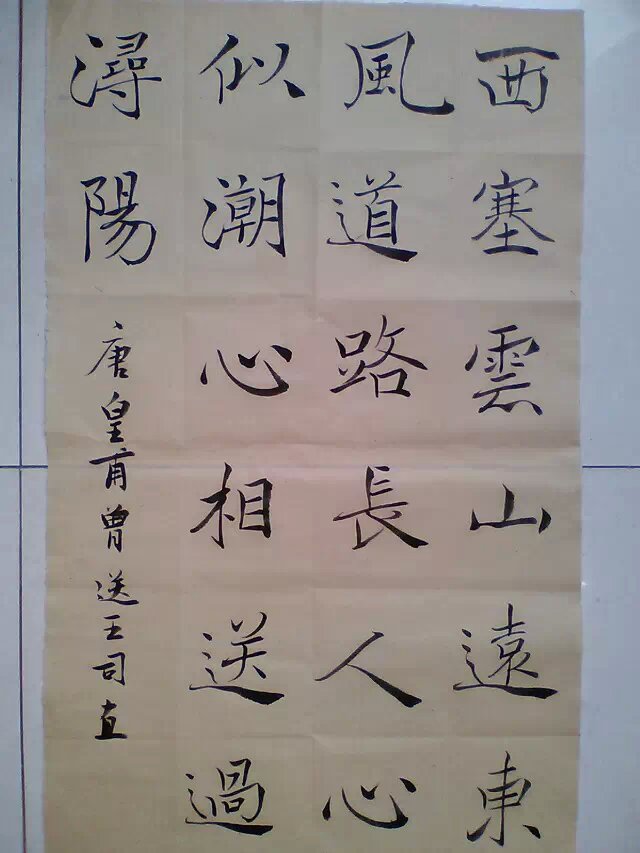 西塞雲山遠東
風道路長人心
似潮心相送過
潯陽
唐皇甫曾送王司直